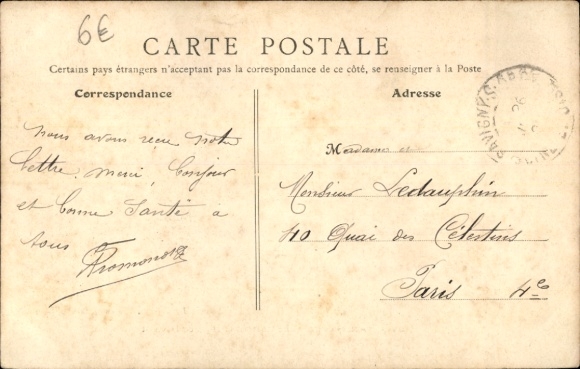 6€
CARTE POSTALE
Certains pays étrangers n'acceptant pas la correspondance de ce côté, se renseigner à la Poste
Correspondance
nous avons reçu votre
lettre, merci, bonjour
et bonne Santé a
tous
Adresse
Madame et
Monsieur Ledauphin
40 Quai des Célestins
Paris 4e